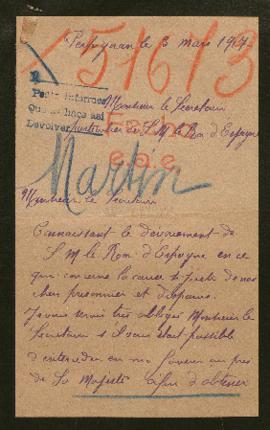 Perpignan le 3 mars 1917
51673
Monsieur le Secretaire
particulier de S. M le Roi d'Espagne
Devolver
Fecha
e.a.e.
Martin
Monsieur le Secretaire
Connaissant le dévouement de
S M le Roi d'Espagne en ce
qui concerne la cause si juste de nos
chers prisonniers et disparus.
Je vous serais très obligée Monsieur le
Secretaire s'il vous était possible
d'interceder en ma faveur au près
de Sa Majesté afin d'obtenir